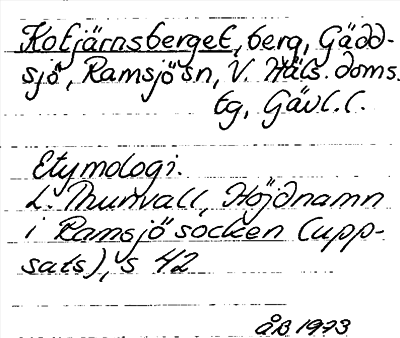 Kotjärnsberget, berg, Gädd-
sjö, Ramsjö sn, V. Häls. doms.
tg, Gävl. l.
Etymologi.
L. Thunvall, Höjdnamn
i Ramsjö socken (upp-
sats), s 42
ÅB 1973